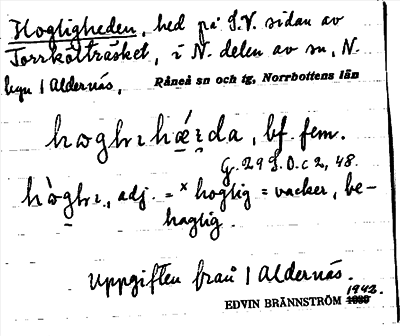 Hogligheden, hed på S.V. sidan av
Torrkölträsket, i N. delen av sn, N.
byn 1 Aldernäs, Råneå sn och tg, Norrbottens län
bf. fem.
G. 29 S. O. c 2, 48.
adj. = × hoglig = vacker, be-
haglig.
Uppgiften från 1 Aldernäs.
1942.
EDVIN BRÄNNSTRÖM